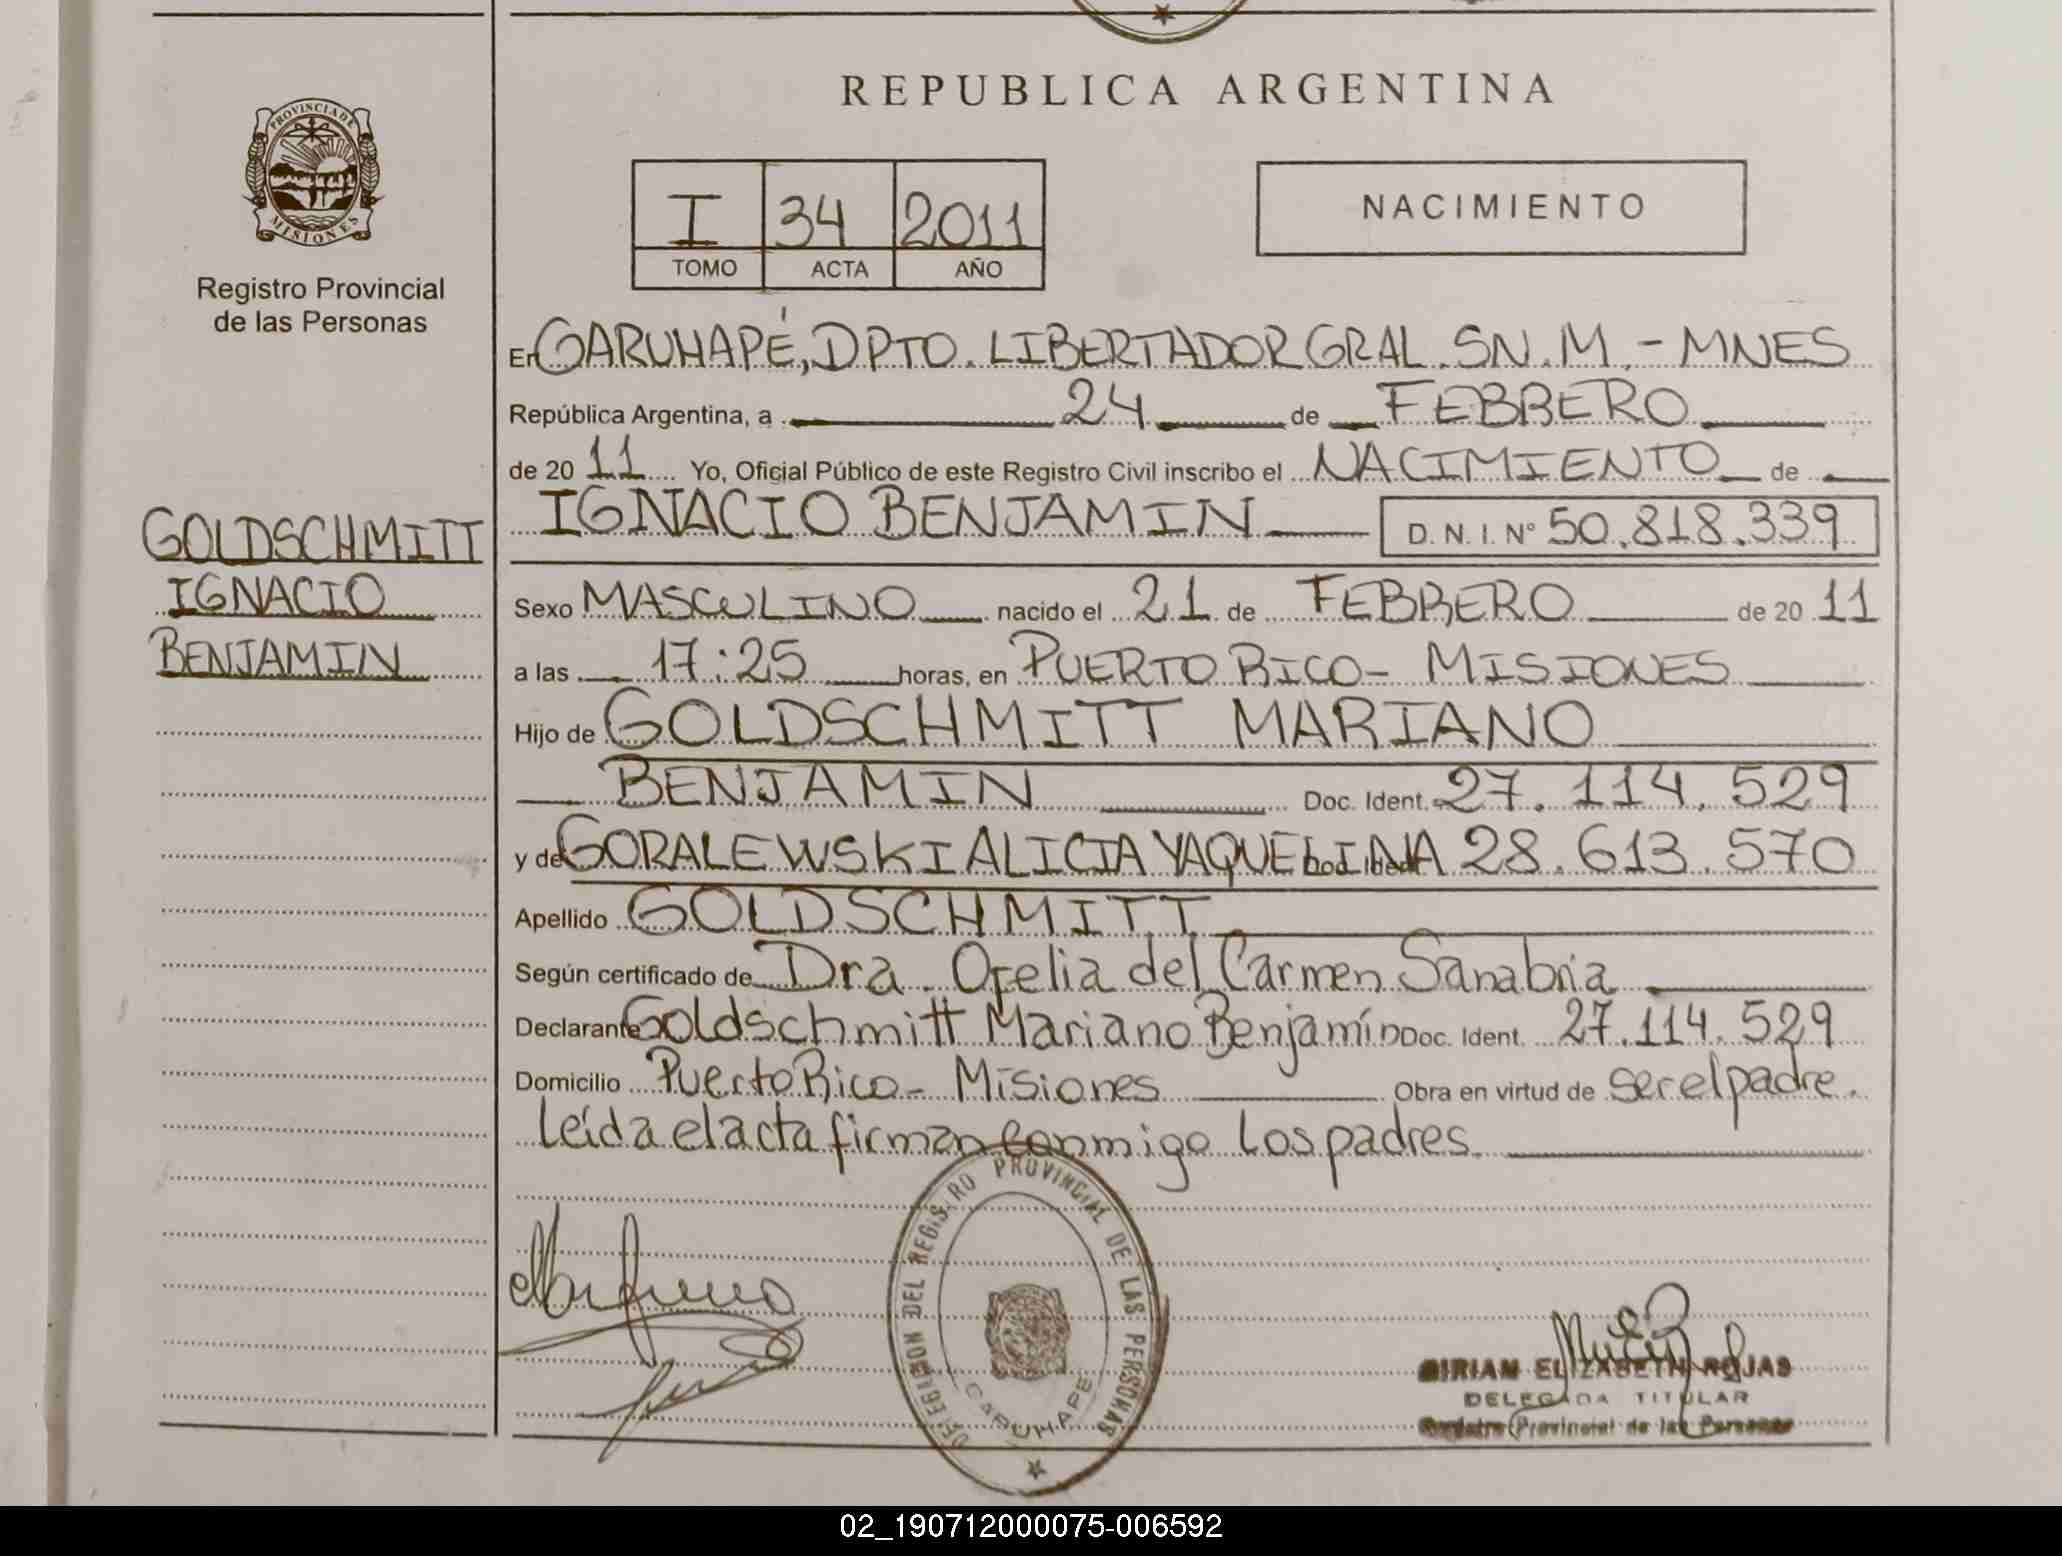 REPUBLICA ARGENTINA
PROVINCIA DE
MISIONES
Registro Provincial
de las Personas
I 34 2011
TOMO ACTA AÑO
NACIMIENTO
En GARUHAPÉ, DPTO. LIBERTADOR GRAL. SN. M. - MNES
República Argentina, a 24 de FEBRERO
de 20 11 Yo, Oficial Público de este Registro Civil inscribo el NACIMIENTO de
IGNACIO BENJAMIN D.N.I. Nº 50.818.339
GOLDSCHMITT
IGNACIO
BENJAMIN
Sexo MASCULINO nacido el 21 de FEBRERO de 20 11
a las 17:25 horas, en PUERTO RICO - MISIONES
Hijo de GOLDSCHMITT MARIANO
BENJAMIN Doc. Ident. 27.114.529
y de GORALEWSKI ALICIA YAQUELINA Doc. Ident. 28.613.570
Apellido GOLDSCHMITT
Según certificado de Dra. Ofelia del Carmen Sanabria
Declarante Goldschmitt Mariano Benjamín Doc. Ident. 27.114.529
Domicilio Puerto Rico - Misiones Obra en virtud de ser el padre.
Leída el acta firman conmigo los padres.
DELEGACION DEL REGISTRO PROVINCIAL DE LAS PERSONAS
GARUHAPE
MIRIAM ELIZABETH ROJAS
DELEGADA TITULAR
Registro Provincial de las Personas
02_190712000075-006592